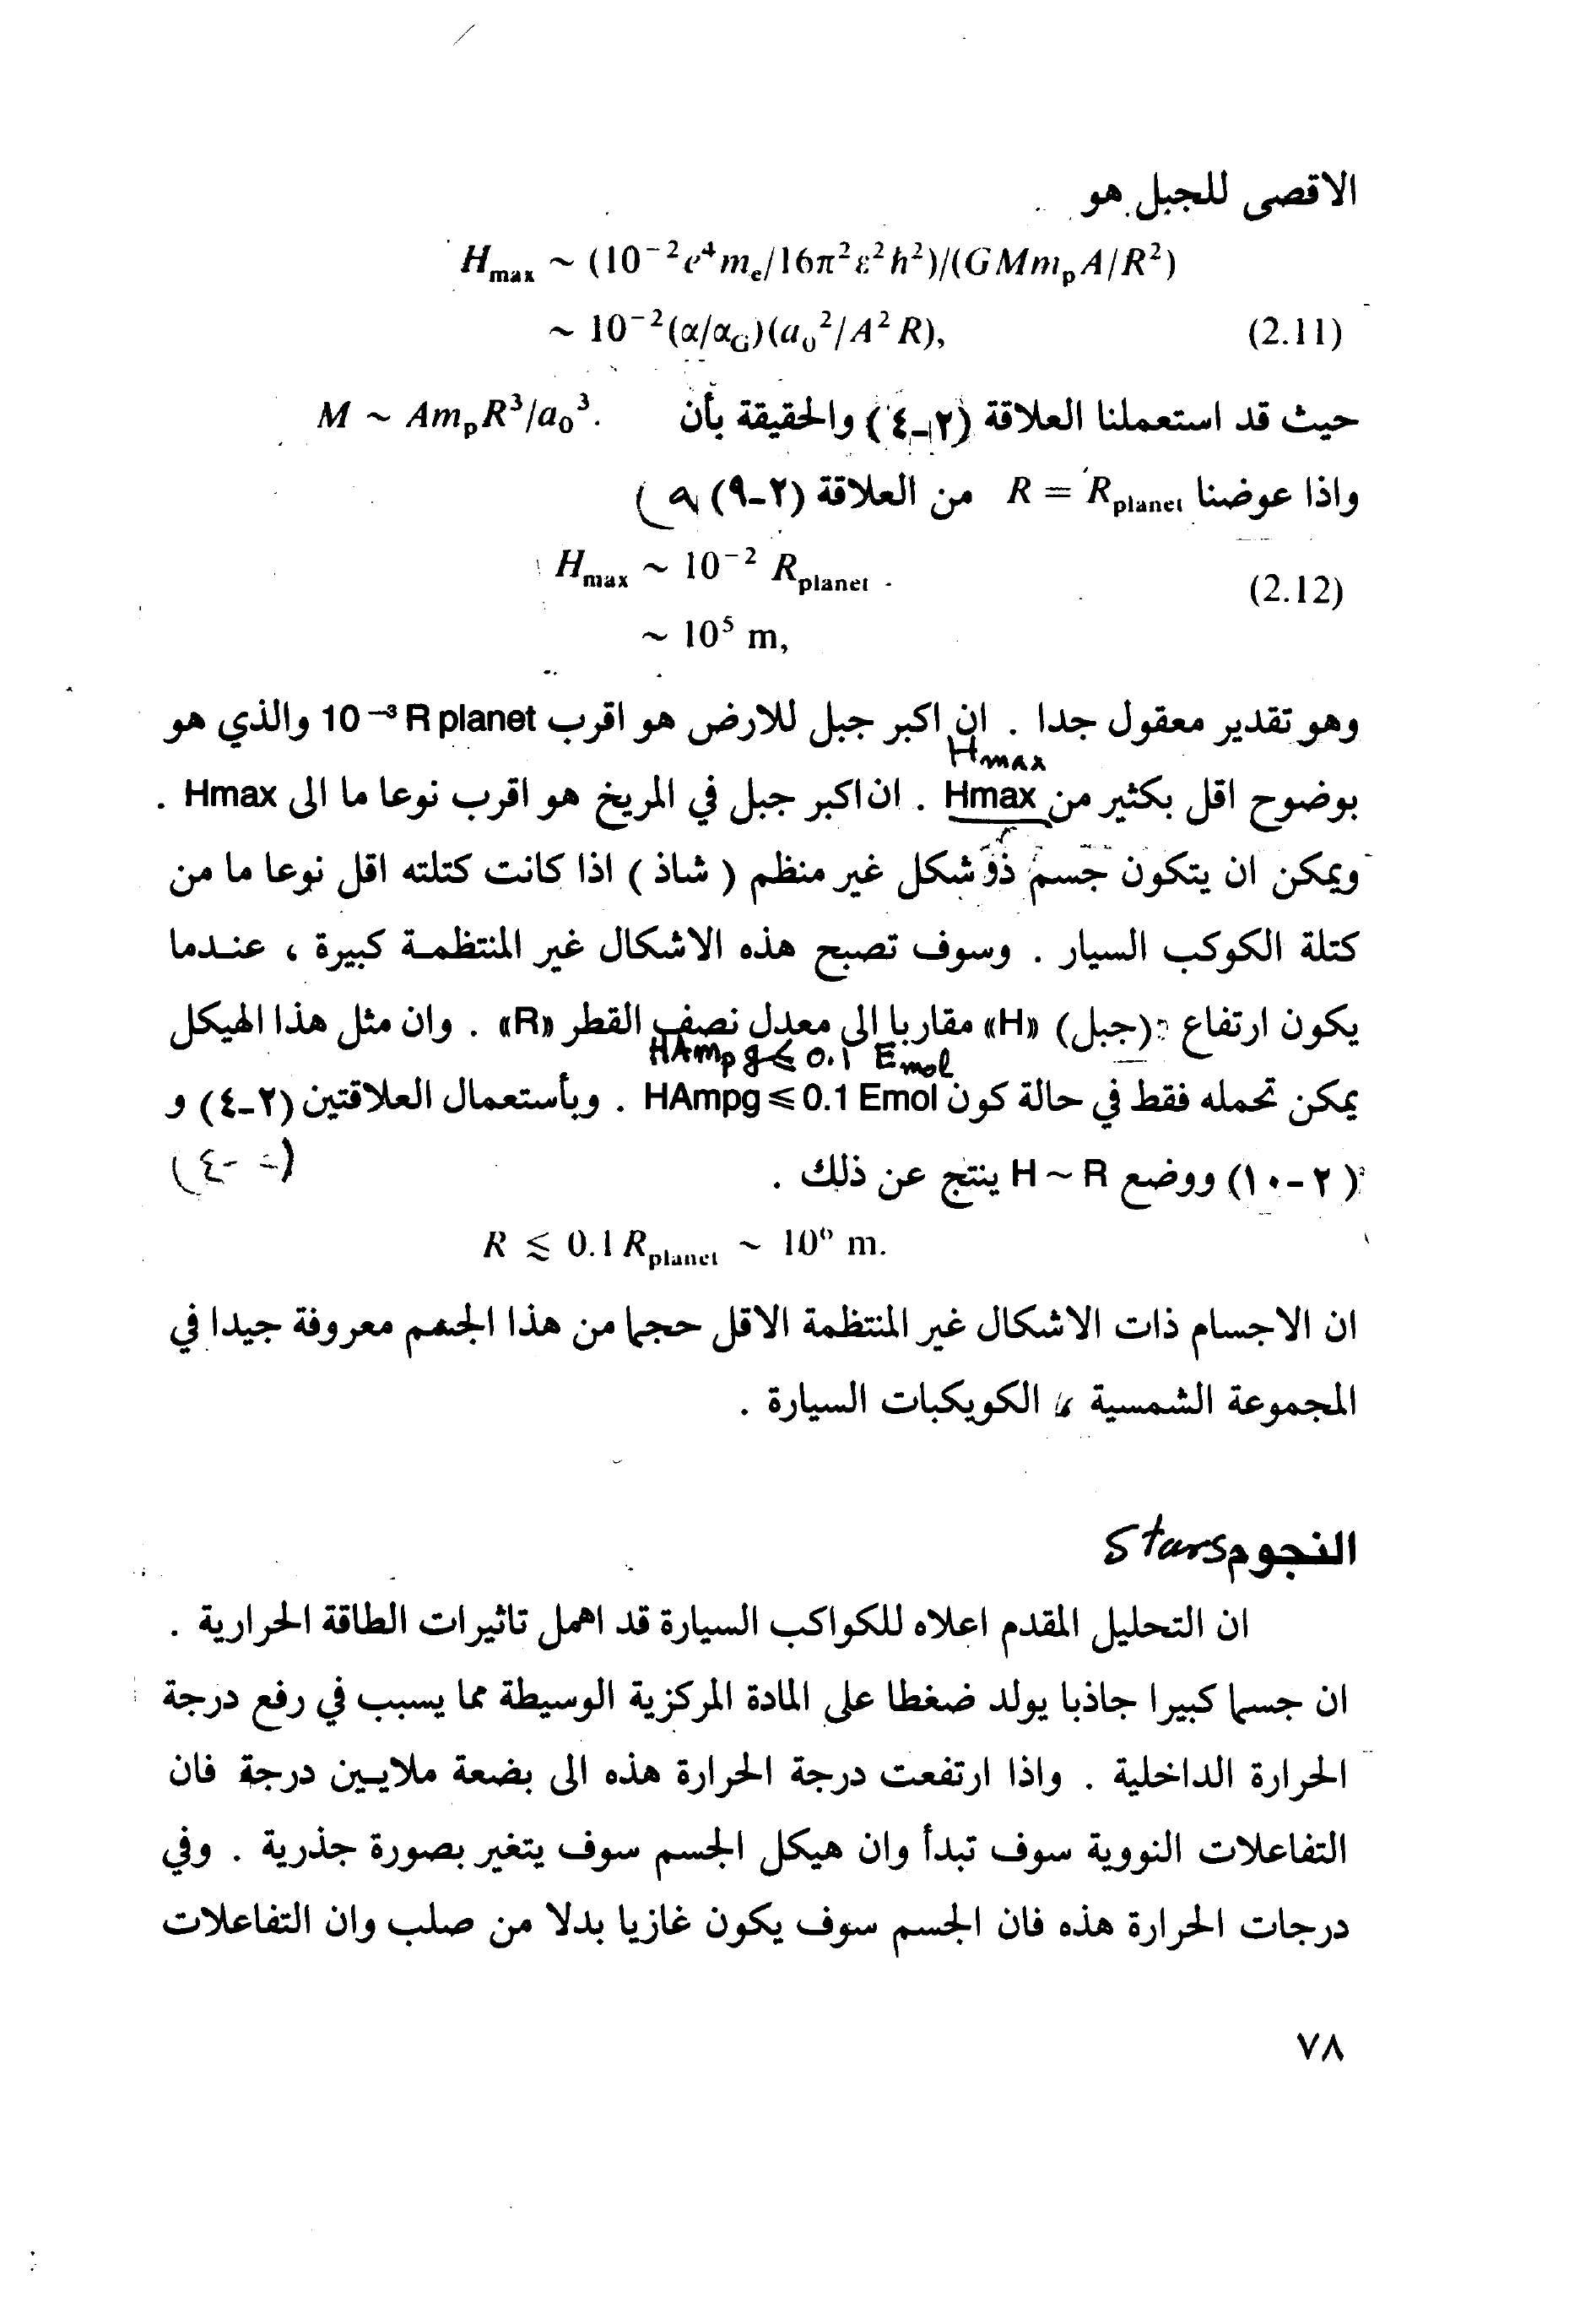 الاقصى للجبل هو
Hmax ~ (10⁻²e⁴mₑ/16π²ε²ħ²)/(GMmₚA/R²)
~ 10⁻²(α/α_G)(a₀²/A²R), (2.11)
حيث قد استعملنا العلاقة (٢-٤) والحقيقة بأن M ~ AmₚR³/a₀³.
واذا عوضنا R = Rplanet من العلاقة (٢-٩)
Hmax ~ 10⁻² Rplanet (2.12)
~ 10⁵ m,
وهو تقدير معقول جدا . ان اكبر جبل للارض هو اقرب 10⁻³ R planet والذي هو
Hmax
بوضوح اقل بكثير من Hmax . ان اكبر جبل في المريخ هو اقرب نوعا ما الى Hmax .
ويمكن ان يتكون جسم ذو شكل غير منظم ( شاذ ) اذا كانت كتلته اقل نوعا ما من
كتلة الكوكب السيار . وسوف تصبح هذه الاشكال غير المنتظمة كبيرة ، عندما
يكون ارتفاع (جبل) «H» مقاربا الى معدل نصف القطر «R» . وان مثل هذا الهيكل
HAmₚg ≤ 0.1 Emol
يمكن تحمله فقط في حالة كون HAmpg ≤ 0.1 Emol . وبأستعمال العلاقتين (٢-٤) و
(٢-١٠) ووضع H ~ R ينتج عن ذلك .
R ≲ 0.1 Rplanet ~ 10⁶ m.
ان الاجسام ذات الاشكال غير المنتظمة الاقل حجما من هذا الجسم معروفة جيدا في
المجموعة الشمسية الكويكبات السيارة .
النجوم Stars
ان التحليل المقدم اعلاه للكواكب السيارة قد اهمل تاثيرات الطاقة الحرارية .
ان جسما كبيرا جاذبا يولد ضغطا على المادة المركزية الوسيطة مما يسبب في رفع درجة
الحرارة الداخلية . واذا ارتفعت درجة الحرارة هذه الى بضعة ملايين درجة فان
التفاعلات النووية سوف تبدأ وان هيكل الجسم سوف يتغير بصورة جذرية . وفي
درجات الحرارة هذه فان الجسم سوف يكون غازيا بدلا من صلب وان التفاعلات
٧٨